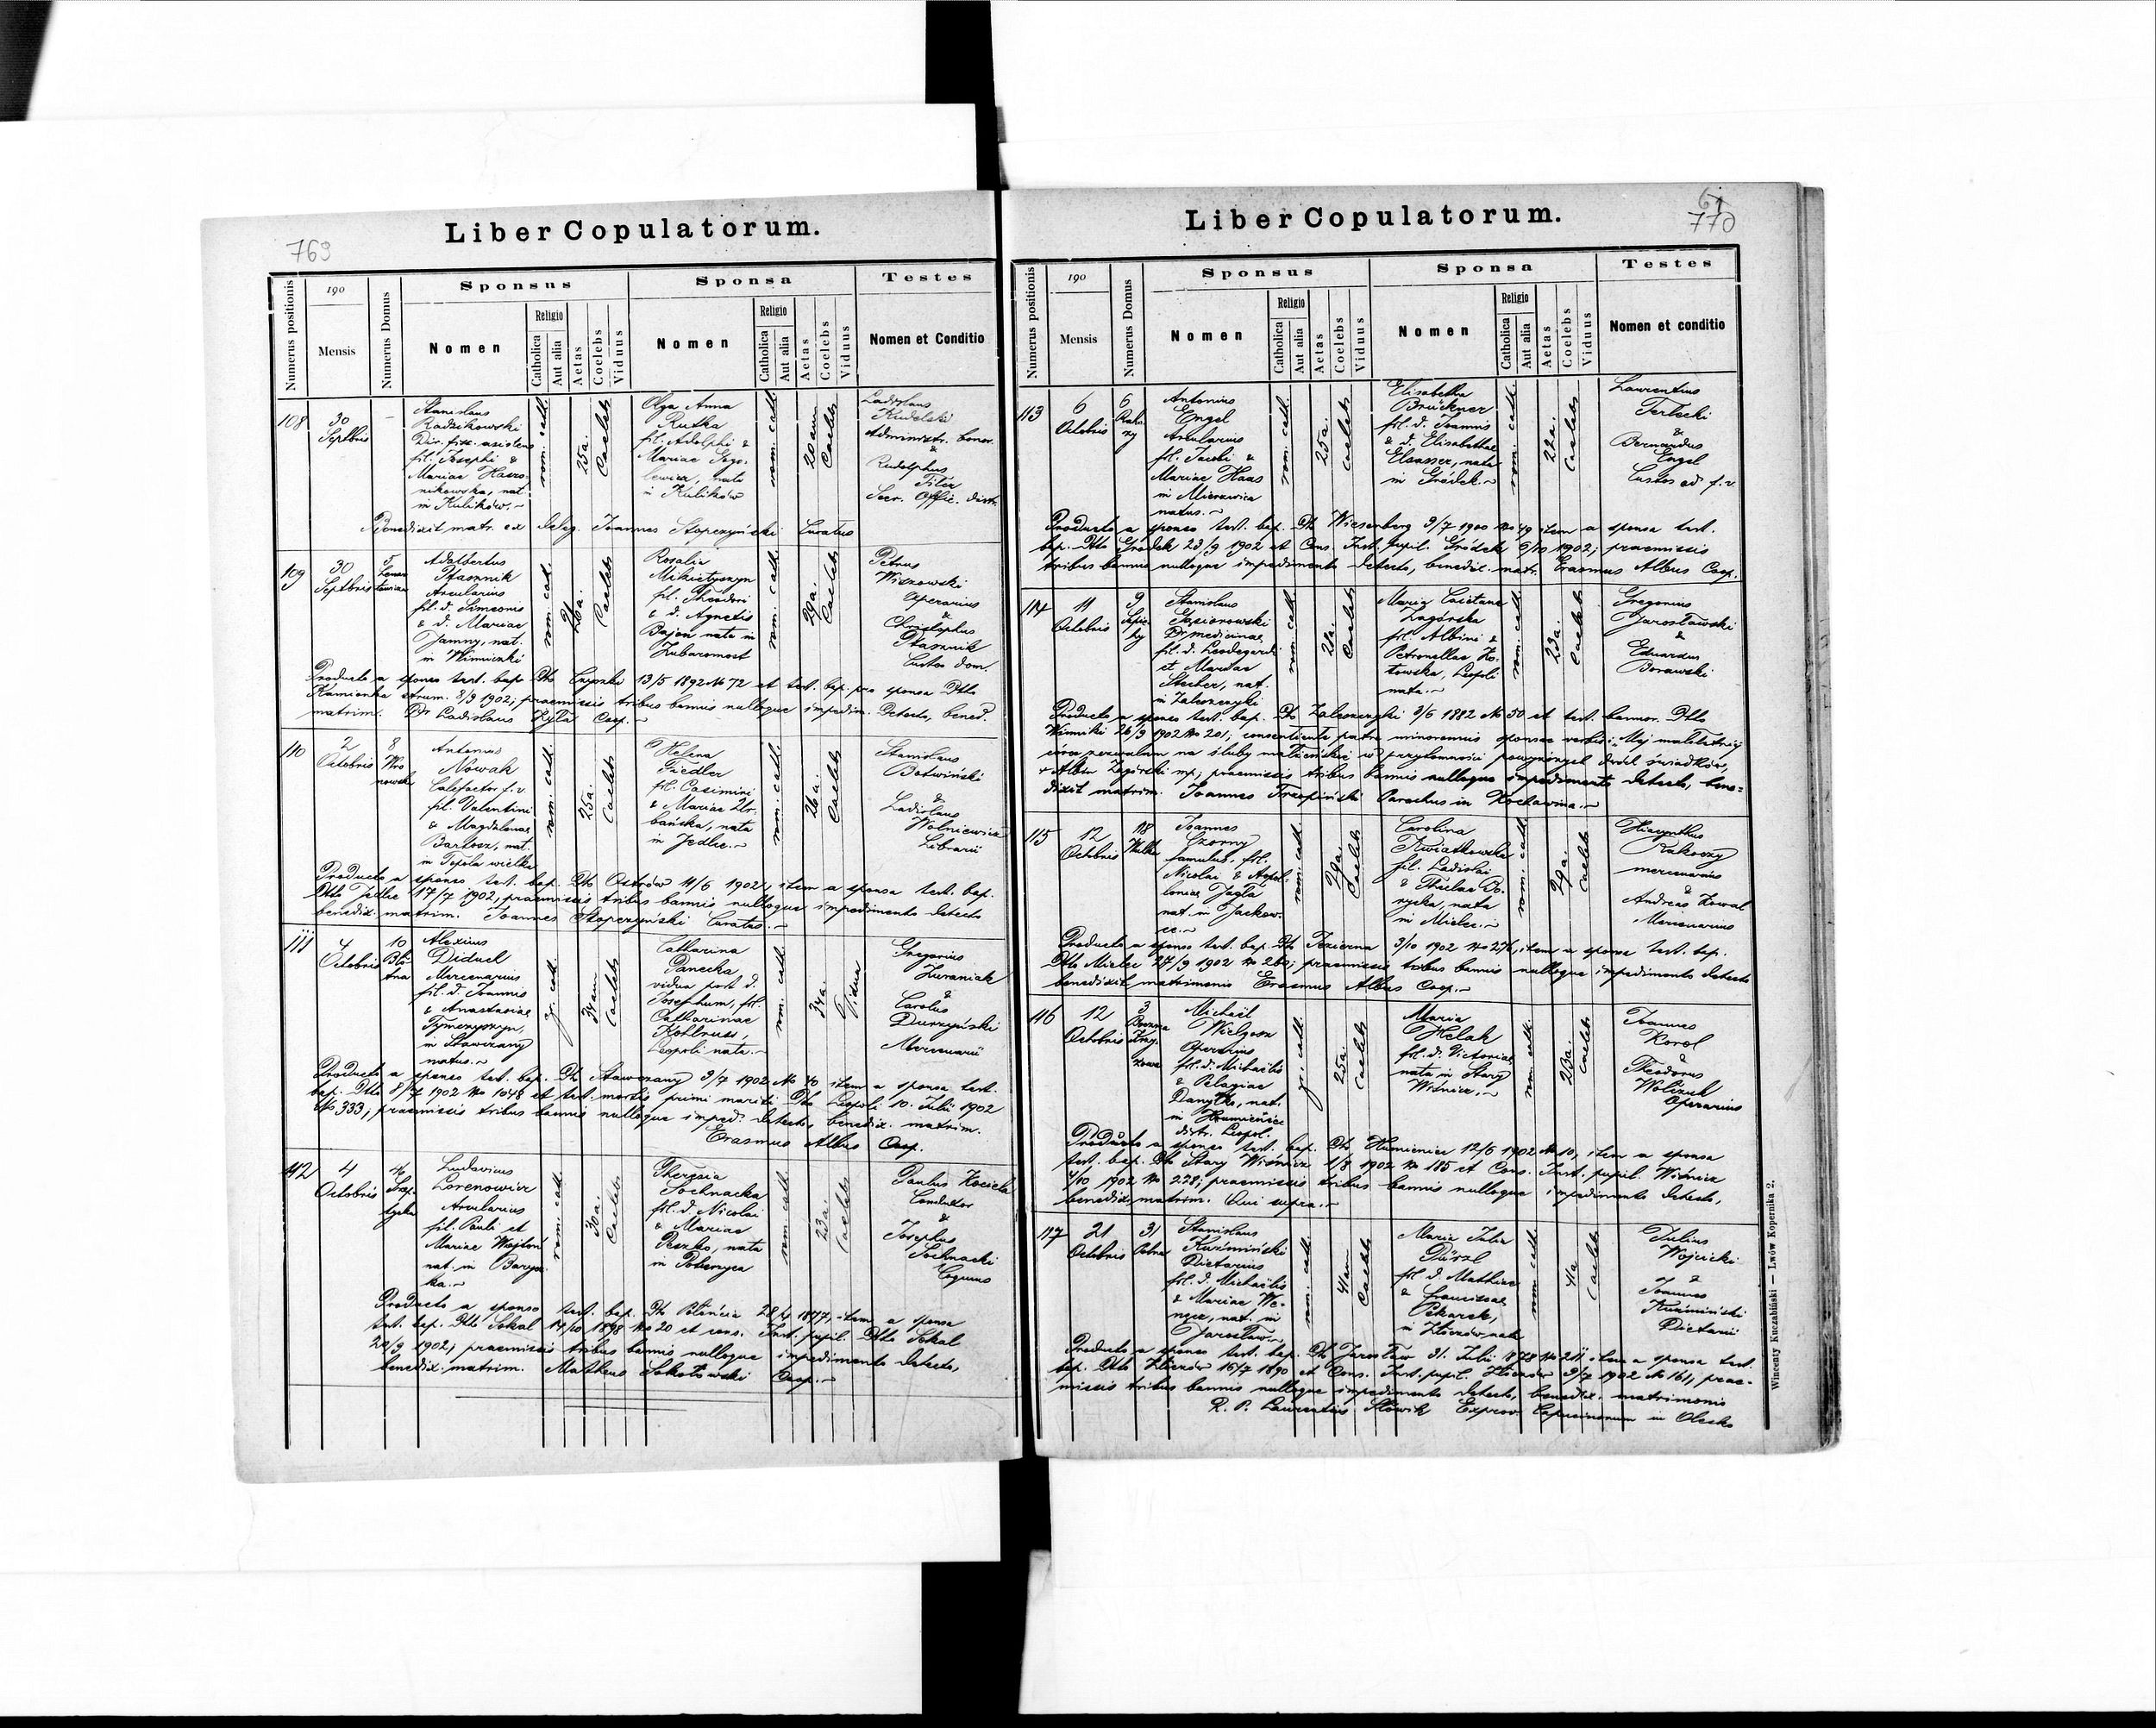 Liber Copulatorum.
763
Numerus positionis
190
Mensis
Numerus Domus
Sponsus
Nomen
Religio
Catholica
Aut alia
Aetas
Coelebs
Viduus
Sponsa
Nomen
Religio
Catholica
Aut alia
Aetas
Coelebs
Viduus
Testes
Nomen et Conditio
108
30
Septbris
-
Stanislaus
Radzikowski
Dir. fisc. asistens
fil. Josephi &
Mariae
nikowska, nat.
in Kulików.
rom. cath.
25 a.
Caelebs
Olga Anna
Rutka
fil. Adolphi &
Mariae
lewicz, nata
in Kulików
rom. cath.
20 ann
Caelebs
Ladislaus
Kudelski
Administr. bonor.
&
Rudolphus
Titer
Secr. Offic. distr.
Benedixit matr. ex deleg. Joannes Stopczyński Curatus
109
30
Septbris
5
Adalbertus
Ptasznik
Arcularius
fil. d. Simeonis
& d. Mariae
Jamny, nat.
in Winniczki
rom. cath.
26 a.
Caelebs
Rosalia
Mikietyszyn
fil. Theodori
& d. Agnetis
Bajon nata in
Żubromost
rom. cath.
29 a.
Caelebs
Petrus
Wiszowski
Operarius
&
Christophus
Ptasznik
Custos dom.
Producto a sponso test. bap. Dto 13/5 1892 No 72 et test. bap. pro sponsa Dtto
Kamionka strum. 3/9 1902; praemissis tribus bannis nulloque impedim. detecto, bened.
matrim. Dr Ladislaus Coop.
110
2
Octobris
8
Wro
nowska
Antonius
Nowak
Calefactor f. v.
fil. Valentini
& Magdalenae
Bartosz, nat.
in Topola wielka
rom. cath.
25 a.
Caelebs
Helena
Fiedler
fil. Casimiri
& Mariae Ur-
bańska, nata
in Jedlec.
rom. cath.
26 a.
Caelebs
Stanislaus
Botwiński
&
Ladislaus
Wolniewicz
Librarii
Producto a sponso test. bap. Dto Ostrów 11/6 1902, item a sponsa test. bap.
Dtto Jedlec 17/7 1902, praemissis tribus bannis nulloque impedimento detecto
benedix. matrim. Joannes Stopczyński Curatus.
111
4
Octobris
10
Bło-
tna
Alexius
Diduch
Mercenarius
fil. d. Joannis
& Anastasiae
Tymczyszyn,
in Stawczany
natus.
gr. cath.
34 ann
Caelebs
Catharina
Panecka
vidua post d.
Josephum, fil.
Catharinae
Kohlruss,
Leopoli nata.
rom. cath.
34 a.
Vidua
Gregorius
Żuraniak
&
Carolus
Durzyński
Mercenarii
Producto a sponso test. bap. Dto Stawczany 3/7 1902 No 40 item a sponsa test.
bap. Dtto 8/7 1902 No 1048 et test. mortis primi mariti Dto Leopoli 10. Julii 1902
No 333, praemissis tribus bannis nulloque imped. detecto, benedix. matrim.
Erasmus Albus Coop.
112
4
Octobris
Ludovicus
Lorenowicz
Arcularius
fil. Pauli et
Mariae
nat. in
rom. cath.
30 a.
Caelebs
Theresia
Sochnacka
fil. d. Nicolai
& Mariae
Peszko, nata
in Poturzyca
rom. cath.
23 a.
Caelebs
Paulus Kociela
Conductor
&
Josephus
Sochnacki
Producto a sponso test. bap. Dto 28/4 1877, item a sponsa
test. bap. Dtto Sokal 14/10 1898 No 20 et cons. Inst. pupil. Dtto Sokal
1902, praemissis tribus bannis nulloque impedimento detecto,
benedix. matrim. Mattheus Sokołowski Coop.
Liber Copulatorum.
61
770
Numerus positionis
190
Mensis
Numerus Domus
Sponsus
Nomen
Religio
Catholica
Aut alia
Aetas
Coelebs
Viduus
Sponsa
Nomen
Religio
Catholica
Aut alia
Aetas
Coelebs
Viduus
Testes
Nomen et conditio
113
6
Octobris
6
Antonius
Engel
Arcularius
fil. Jacobi &
Mariae Haas
in Mierzwica
natus.
rom. cath.
25 a.
Caelebs
Elisabetha
Brückner
fil. d. Joannis
& d. Elisabethae
Elsasser, nata
in Gródek.
rom. cath.
22 a.
Caelebs
Laurentius
Terlecki
&
Bernardus
Engel
Custos ad f. v.
Producto a sponso test. bap. Dto Wiesenberg 9/7 1900 No 49 item a sponsa test.
bap. Dtto Gródek 23/9 1902 et Cons. Inst. pupil. Gródek 6/10 1902; praemissis
tribus bannis nulloque impedimento detecto, benedix. matr. Erasmus Albus Coop.
114
11
Octobris
9
Stanislaus
Gąsiorowski
Dr medicinae
fil. d. Leodegardi
et Mariae
Stecher, nat.
in Zaleszczyki
rom. cath.
Caelebs
Maria Caietana
Zagórska
fil. Albini &
Petronellae Ko-
towska, Leopoli
nata.
rom. cath.
23 a.
Caelebs
Gregorius
Jarosławski
&
Eduardus
Borawski
Producto a sponso test. bap. Dto Zaleszczyki 3/6 1882 No 50 et test. bannor. Dtto
Winniki 26/9 1902 No 201; consentiente patre minorennis sponsae verbis: „Mej małoletniej
córce zezwalam na śluby małżeńskie w przytomności powyższych dwóch świadków,
Albin Zagórski mp; praemissis tribus bannis nulloque impedimento detecto, bene-
dixit matrim. Joannes Trzopiński Parochus in Kochawina.
115
12
Octobris
18
Wulka
Joannes
Czorny
famulus, fil.
Nicolai & Apol-
loniae Jagła
nat. in Jackow-
ce.
rom. cath.
29 a.
Caelebs
Carolina
Kwiatkowska
fil. Ladislai
& Theclae Bo-
rycka, nata
in Mielec.
rom. cath.
29 a.
Caelebs
Hiacynthus
Rakoczy
mercenarius
&
Andreas Kowal
Mercenarius
Producto a sponso test. bap. Dto Jezierna 3/10 1902 No 276, item a sponsa test. bap.
Dtto Mielec 27/9 1902 No 260; praemissis tribus bannis nulloque impedimento detecto
benedixit matrimonio Erasmus Albus Coop.
116
12
Octobris
3
Michaël
Wielgosz
Operarius
fil. d. Michaëlis
& Pelagiae
Danyłko, nat.
in Humieniec
distr. Leopol.
gr. cath.
25 a.
Caelebs
Maria
Helak
fil. d. Victoriae
nata in Stary
Wiśnicz.
rom. cath.
23 a.
Caelebs
Joannes
Korol
&
Theodorus
Wolczuk
Operarius
Producto a sponso test. bap. Dto Humieniec 12/6 1902 No 10, item a sponsa
test. bap. Dto Stary Wiśnicz 1/8 1902 No 185 et Cons. Inst. pupil. Wiśnicz
4/10 1902 No 228; praemissis tribus bannis nulloque impedimento detecto,
benedix. matrim. Qui supra.
117
21
Octobris
31
Stanislaus
Kuźmiński
Dietarius
fil. d. Michaëlis
& Mariae We-
ngrz, nat. in
Jarosław.
rom. cath.
41 ann
Caelebs
Maria Julia
Pürzl
fil. d. Mathiae
& Franciscae
Pekarek,
in Złoczów nata
rom. cath.
41 a.
Caelebs
Julius
Wojcicki
&
Joannes
Kuźmiński
Dietarii
Producto a sponso test. bap. Dto Jarosław 31. Julii 1878 No 211 item a sponsa test.
bap. Dtto Złoczów 16/7 1890 et Cons. Inst. pupil. Złoczów 9/7 1902 No 161, prae-
missis tribus bannis nulloque impedimento detecto, benedix. matrimonio
R. P. Laurentius Słowik Exprov. Capucinorum in Olesko
Wincenty Kuczabiński — Lwów Kopernika 2.